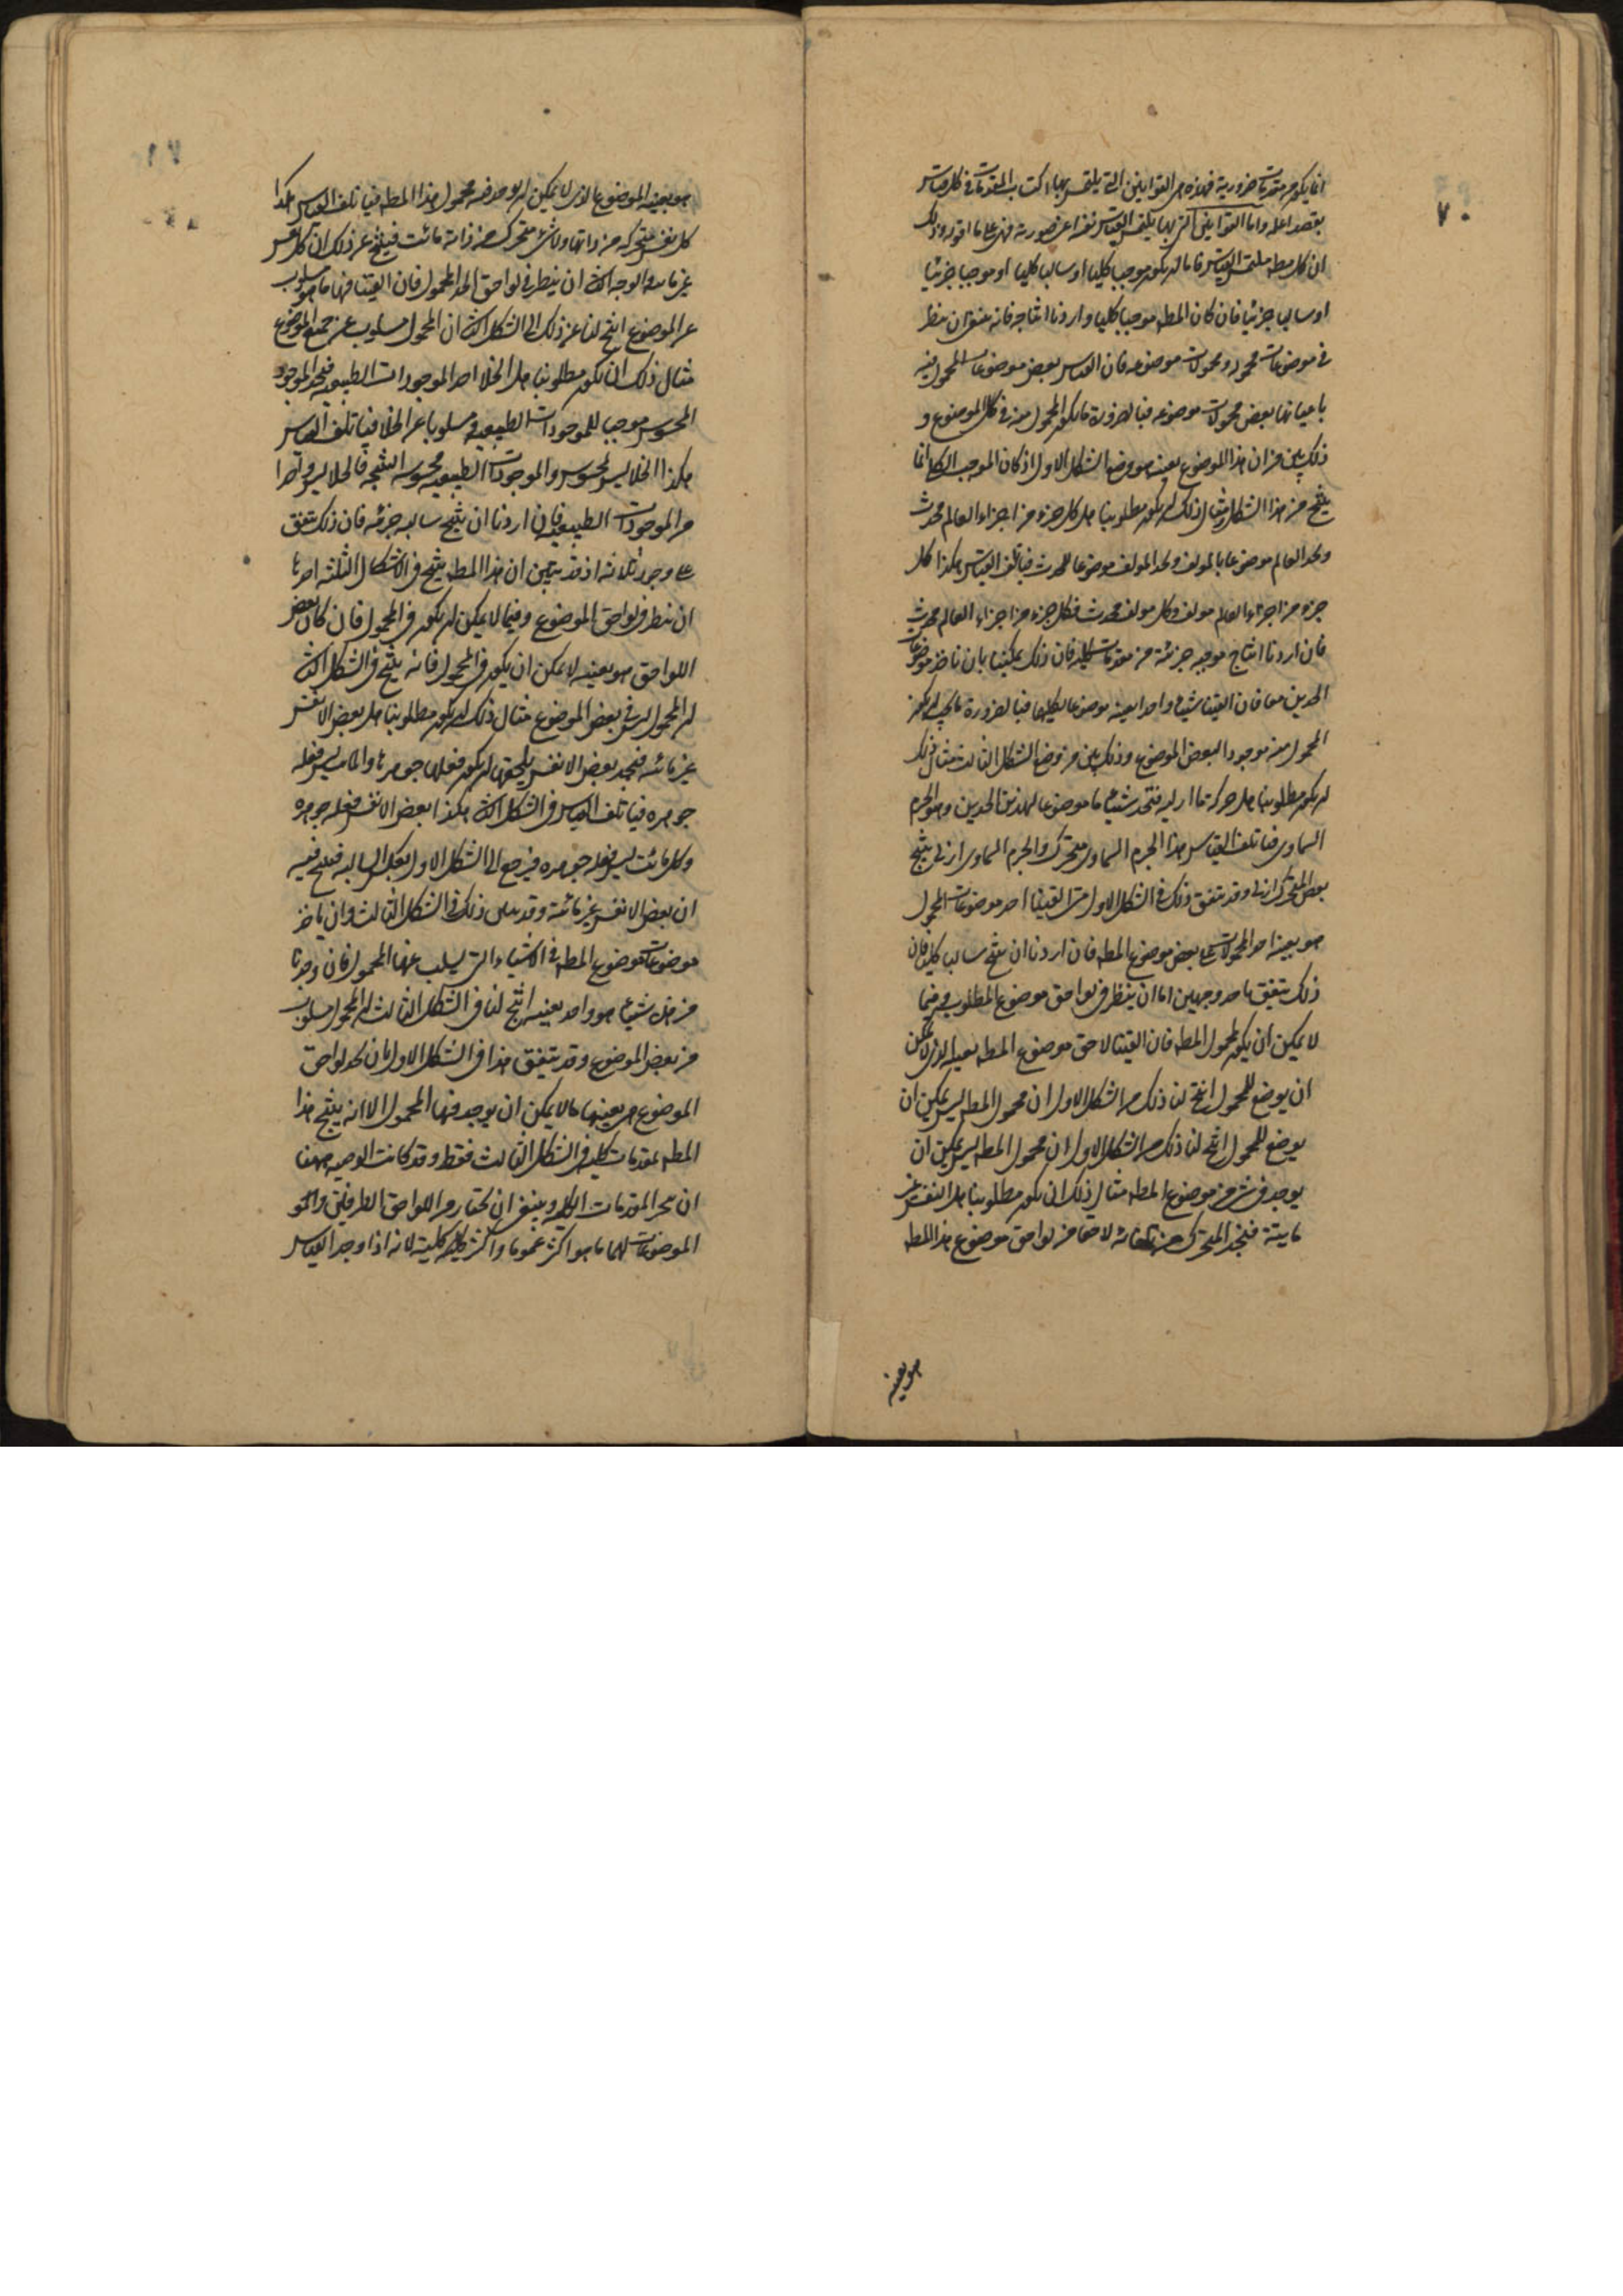 ٧٠
انما يكون من مقدمات ضرورية فهذه هي القوانين التي يلتمس بها اكتساب المقدمات في كل قياس
بقصد اعله واما القوانين التي بها يلتمس القياس نفسه اعنى صورته فهي على ما اقوله وذلك
ان كل مطه يلتمس القياس فاما ان يكون موجبا كليا او سالبا كليا او موجبا جزئيا
او سالبا جزئيا فان كان المطه موجبا كليا واردنا انتاجه فانه ينبغى ان ننظر
في موضوعات محموله ومحمولات موضوعه فان القياس بعض موضوعات المحمول فيه
باعيانها بعض محمولات موضوعه فبالضرورة ما يكون المحمول منه في كل الموضوع و
ذلك بين من ان هذا الموضوع بعينه هو وضع الشكل الاول اذ كان الموجب الكلى انما
ينتج من هذا الشكل مثال ذلك ان يكون مطلوبنا هل كل جزء من اجزاء العالم محدث
ونجد العالم موضوعا بالمولف ونجد المولف موضوعا للمحدث فيأتلف القياس هكذا كل
جزء من اجزاء العالم مولف وكل مولف محدث فكل جزء من اجزاء العالم محدث
فان اردنا انتاج موجبه جزئية من مقدمات كلية فان ذلك يمكننا بان ناخذ موضوعات
الحدين معا فان الفينا شيئا واحدا بعينه موضوعا لكليهما فبالضرورة ما يجب ان يكون
المحمول منه موجودا لبعض الموضوع وذلك بين من وضع الشكل الثالث مثال ذلك
ان يكون مطلوبنا هل حركة ما ازلية فنجد شيئا ما موضوعا لهذين الحدين وهو الجرم
السماوى فياتلف القياس هذا الجرم السماوى متحرك والجرم السماوى ازلى ينتج
بعض المتحرك ازلى وقد يتفق ذلك في الشكل الاول متى الفينا احد موضوعات المحمول
هو بعينه احد المحمولات على بعض موضوع المطه فان اردنا ان ننتج سالبا كليا فان
ذلك يتفق باحد وجهين اما ان ينظر في لواحق موضوع المطلوب وفيما
لا يمكن ان يكون لمحمول المطه فان الفينا لاحق موضوع المطه بعينه الذى لا يمكن
ان يوضع للمحمول انتج لنا ذلك من الشكل الاول ان محمول المطه ليس يمكن ان
يوضع للمحمول انتج لنا ذلك من الشكل الاول ان محمول المطه ليس يمكن ان
يوجد في شئ من موضوع المطه مثال ذلك ان يكون مطلوبنا هل النفس غير
مايتة فنجد المتحرك من تلقائه لاحقا من لواحق موضوع هذا المطه
هو بعينه
٧١
هو بعينه الموضوع الذى لا يمكن ان يوجد فيه محمول هذا المطه فياتلف القياس هكذا
كل نفس متحركه من ذاتها ولا شئ متحرك من ذاته مائت فينتج عن ذلك ان كل نفس
غير مائته والوجه الثانى ان ينظر في لواحق الحد المحمول فان الفينا فيها ما هو مسلوب
عن الموضوع انتج لنا عن ذلك في الشكل الثانى ان المحمول مسلوب عن جميع الموضوع
مثال ذلك ان يكون مطلوبنا هل الخلا احد الموجودات الطبيعيه فنجد الموجود
المحسوس موجبا للموجودات الطبيعيه ومسلوبا عن الخلا فياتلف القياس
هكذا الخلا ليس بمحسوس والموجودات الطبيعيه محسوسه النتيجه فالخلا ليس واحدا
من الموجودات الطبيعيه فان اردنا ان ننتج سالبه جزئيه فان ذلك يتفق
على وجوه ثلاثه اذ قد تبين ان هذا المطه ينتج في الاشكال الثلثه احدها
ان ننظر في لواحق الموضوع وفيما لا يمكن ان يكون في المحمول فان كان بعض
اللواحق هو بعينه لا يمكن ان يكون في المحمول فانه ينتج في الشكل الثانى
ان المحمول ليس في بعض الموضوع مثال ذلك ان يكون مطلوبنا هل بعض الانفس
غير مائته فنجد بعض الانفس يلحقها ان يكون فعلها جوهرها والمائت ليس فعله
جوهره فياتلف القياس في الشكل الثانى هكذا بعض الانفس فعله جوهره
وكل مائت ليس فعله جوهره فيرجع الى الشكل الاول بعكس السالبه فينتج فيه
ان بعض الانفس غير مائتة وقد يمكن ذلك في الشكل الثالث وان ياخذ
موضوعات موضوع المطه في الاشياء التي يسلب عنها المحمول فان وجدنا
من هذه شيئا هو واحد بعينه انتج لنا في الشكل الثالث ان المحمول مسلوب
من بعض الموضوع وقد يتفق هذا في الشكل الاول بان نجد لواحق
الموضوع هى بعينها ما لا يمكن ان يوجد فيها المحمول الا انه ينتج هذا
المطه بمقدمات كليه في الشكل الثالث فقط وقد كانت الوصيه ههنا
ان نتحرى المقدمات الكليه وينبغى ان نختار من اللواحق الطرفين والمو
الموضوعات لهما ما هو اكثر عموما واكثر كلية لانه اذا وجد القياس